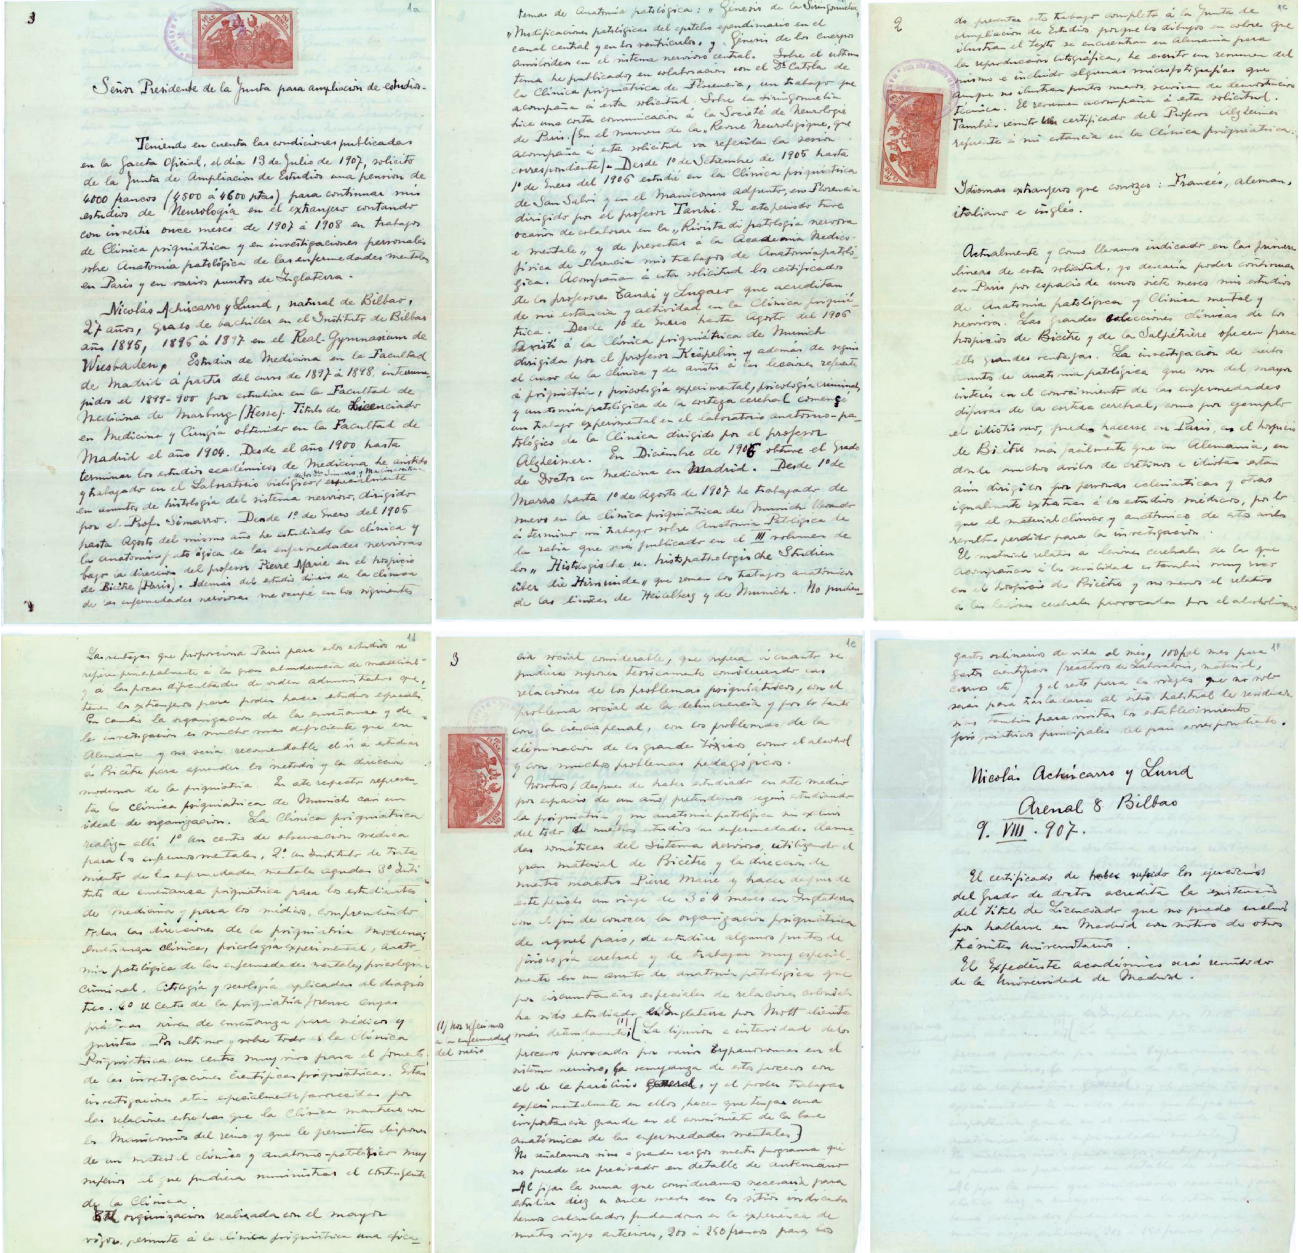 3
1a
Señor Presidente de la Junta para ampliación de estudios.
Teniendo en cuenta las condiciones publicadas
en la Gaceta Oficial, el dia 13 de Julio de 1907, solicito
de la Junta de Ampliación de Estudios una pension de
4000 francos (4500 á 4600 ptas) para continuar mis
estudios de Neurología en el extranjero contando
con invertir once meses de 1907 á 1908 en trabajos
de Clínica psiquiatrica y en investigaciones personales
sobre Anatomía patológica de las enfermedades mentales
en Paris y en varios puntos de Inglaterra.
Nicolás Achúcarro y Lund, natural de Bilbao,
27 años, grado de bachiller en el Instituto de Bilbao
año 1895, 1896 á 1897 en el Real-Gymnasium de
Wiesbaden. Estudios de Medicina en la Facultad
de Madrid á partir del curso de 1897 á 1898, interrum-
pidos el 1899-900 por estudiar en la Facultad de
Medicina de Marburg (Hesse). Título de Licenciado
en Medicina y Cirugía obtenido en la Facultad de
Madrid el año 1904. Desde el año 1900 hasta
terminar los estudios académicos de Medicina he asistido
y trabajado en el Laboratorio biológico especialmente
en asuntos de histología del sistema nervioso, dirigido
por el Prof. Simarro. Desde 1º de Enero del 1905
hasta Agosto del mismo año he estudiado la clínica y
la anatomía patológica de las enfermedades nerviosas
bajo la direccion del profesor Pierre Marie en el hospicio
de Bicêtre (Paris). Además del estudio diario de la clínica
de las enfermedades nerviosas me ocupé en los siguientes
temas de Anatomía patológica: "Génesis de la Siringomielia,
"Modificaciones patológicas del epitelio ependimario en el
canal central y en los ventrículos, y Génesis de los cuerpos
amiloideos en el sistema nervioso central. Sobre el ultimo
tema he publicado en colaboracion con el Dr Catola de
la Clínica psiquiátrica de Florencia, un trabajo que
acompaña á esta solicitud. Sobre la siringomielia
hice una corta comunicación á la Société de Neurologie
de Paris. (En el numero de la "Revue Neurologique, que
acompaña á esta solicitud va referida la sesion
correspondiente). Desde 1º de Setiembre de 1905 hasta
1º de Enero del 1906 estudié en la Clínica psiquiatrica
de San Salvi y en el Manicomio adjunto, en Florencia
dirigido por el profesor Tanzi. En este periodo tuve
ocasión de colaborar en la "Rivista di patologia nervosa
e mentale" y de presentar á la Academia Medico-
física de Florencia mis trabajos de Anatomía patoló-
gica. Acompañan á esta solicitud los certificados
de los profesores Tanzi y Lugaro que acreditan
de mi estancia y actividad en la Clínica psiquiá-
trica. Desde 1º de Enero hasta Agosto del 1906
asistí á la Clínica psiquiátrica de Munich
dirigida por el profesor Kraepelin y además de seguir
el curso de la clínica y de asistir á las lecciones referente
á psiquiatría, psicología experimental, psicología criminal,
y anatomía patológica de la corteza cerebral comencé
un trabajo experimental en el laboratorio anatomo-pa-
tológico de la Clínica dirigido por el profesor
Alzheimer. En Diciembre de 1906 obtuve el Grado
de Doctor en medicina en Madrid. Desde 1º de
Marzo hasta 1º de Agosto de 1907 he trabajado de
nuevo en la clínica psiquiátrica de Munich llevando
á término mi trabajo sobre Anatomía Patológica de
la rabia que será publicado en el III volumen de
los "Histologische u. histopathologische Studien
über die Hirnrinde, que reunen los trabajos anatómicos
de las clínicas de Heidelberg y de Munich. No pudien-
2
1c
do presentar este trabajo completo á la Junta de
Ampliación de Estudios porque los dibujos en colores que
ilustran el texto se encuentran en Alemania para
la reproduccion litográfica, he escrito un resumen del
mismo é incluido algunas microfotografías que
aunque no ilustran puntos nuevos, servirán de demostracion
técnica. El resumen acompaña á esta solicitud.
También remito un certificado del Profesor Alzheimer
referente á mi estancia en la Clínica psiquiátrica.
Idiomas extranjeros que conozco: Francés, alemán,
italiano é inglés.
Actualmente y como llevamos indicado en las primeras
lineas de esta solicitud, yo desearía poder continuar
en Paris por espacio de unos siete meses mis estudios
de anatomía patológica y Clínica mental y
nerviosa. Las grandes colecciones clínicas de los
hospicios de Bicêtre y de la Salpêtrière ofrecen para
ello grandes ventajas. La investigación de ciertos
puntos de anatomía patológica que son del mayor
interés en el conocimiento de las enfermedades
difusas de la corteza cerebral, como por ejemplo
el idiotismo, pueden hacerse en Paris, en el hospicio
de Bicêtre mas facilmente que en Alemania, en
donde muchos asilos de cretinos e idiotas están
aún dirigidos por personas eclesiásticas y otras
igualmente extrañas á los estudios médicos, por lo
que el material clínico y anatómico de estos asilos
resulta perdido para la investigacion.
El material relativo a lesiones cerebrales de la que
acompañan á la senilidad es tambien muy rico
en el hospicio de Bicêtre y no menos el relativo
á las lesiones cerebrales provocadas por el alcoholismo
1d
Las ventajas que proporciona Paris para estos estudios se
refieren principalmente á la gran abundancia de material
y á las pocas dificultades de orden administrativo que
tienen los extranjeros para poder hacer estudios especiales.
En cambio la organizacion de la enseñanza y de
la investigacion es mucho mas deficiente que en
Alemania y no seria recomendable el ir a estudiar
á Bicêtre para aprender los métodos y la direccion
moderna de la psiquiatría. En este respecto represen-
ta la Clínica psiquiatrica de Munich casi un
ideal de organización. La Clínica psiquiatrica
realiza allí 1º un centro de observacion médica
para los enfermos mentales, 2º un Instituto de trata-
miento de las enfermedades mentales agudas 3º Insti-
tuto de enseñanza psiquiátrica para los estudiantes
de Medicina y para los médicos, comprendiendo
todas las direcciones de la psiquiatría moderna;
enseñanza clínica, psicología experimental, anato-
mía patológica de las enfermedades mentales, psicología
criminal, citología y serología aplicadas al diagnos-
tico. 4º un centro de la psiquiatría forense cuyas
prácticas sirven de enseñanza para médicos y
juristas. Por ultimo y sobre todo es la Clínica
Psiquiátrica un centro muy vivo para el fomento
de las investigaciones científicas psiquiátricas. Estas
investigaciones están especialmente favorecidas por
las relaciones estrechas que la Clínica mantiene con
los Manicomios del reino y que le permiten disponer
de un material clínico y anatomo-patológico muy
superior al que pudiera suministrar el contingente
de la Clínica.
Esta organización realizada con el mayor
rigor, permite á la clínica psiquiátrica una efica-
3
1e
cia social considerable, que supera á cuanto se
pudiera suponer teoricamente considerando las
relaciones de los problemas psiquiátricos, con el
problema social de la delincuencia y por lo tanto
con la ciencia penal, con los problemas de la
eliminacion de los grandes tóxicos como el alcohol
y con muchos problemas pedagógicos.
Nosotros, despues de haber estudiado en este medio
por espacio de un año, pretendemos seguir estudiando
la psiquiatría y su anatomía patológica sin excluir
del todo de nuestros estudios las enfermedades llama-
das somáticas del sistema nervioso, utilizando el
gran material de Bicêtre y la direccion de
nuestro maestro Pierre Marie y hacer despues de
este periodo un viaje de 3 ó 4 meses en Inglaterra
con el fin de conocer la organización psiquiátrica
de aquel pais, de estudiar algunos puntos de
fisiología cerebral y de trabajar muy especial-
mente en un asunto de anatomía patológica que
por circunstancias especiales de relaciones coloniales
ha sido estudiado en Inglaterra por Mott
más detenidamente (1). [La lesion é intensidad de los
(1) Nos referimos
a la enfermedad
del sueño
procesos provocados por varios trypanosomas en el
sistema nervioso, la semejanza de estos procesos con
el de la parálisis general, y el poder trabajar
experimentalmente en ellos, hacen que tengan una
importancia grande en el conocimiento de la base
anatómica de las enfermedades mentales]
No señalamos sino á grandes rasgos nuestro programa que
no puede ser precisado en detalle de antemano.
Al fijar la suma que consideramos necesaria para
estudiar diez u once meses en los sitios indicados
hemos calculado fundandonos en la experiencia de
nuestros viajes anteriores, 200 á 250 francos para los
1f
gastos ordinarios de vida al mes, 100 frs al mes para
gastos científicos (reactivos de Laboratorio, material,
cursos etc, y el resto para los viajes que no solo
serán para trasladarse al sitio habitual de residencia
sino tambien para visitar los establecimientos
psiquiátricos principales del pais correspondiente.
Nicolás Achúcarro y Lund
Arenal 8 Bilbao
9. VIII. 907.
El certificado de haber sufrido los ejercicios
del Grado de doctor acredita la existencia
del Título de Licenciado que no puedo incluir
por hallarse en Madrid con motivo de otros
trámites universitarios.
El Expediente académico será remitido
de la Universidad de Madrid.